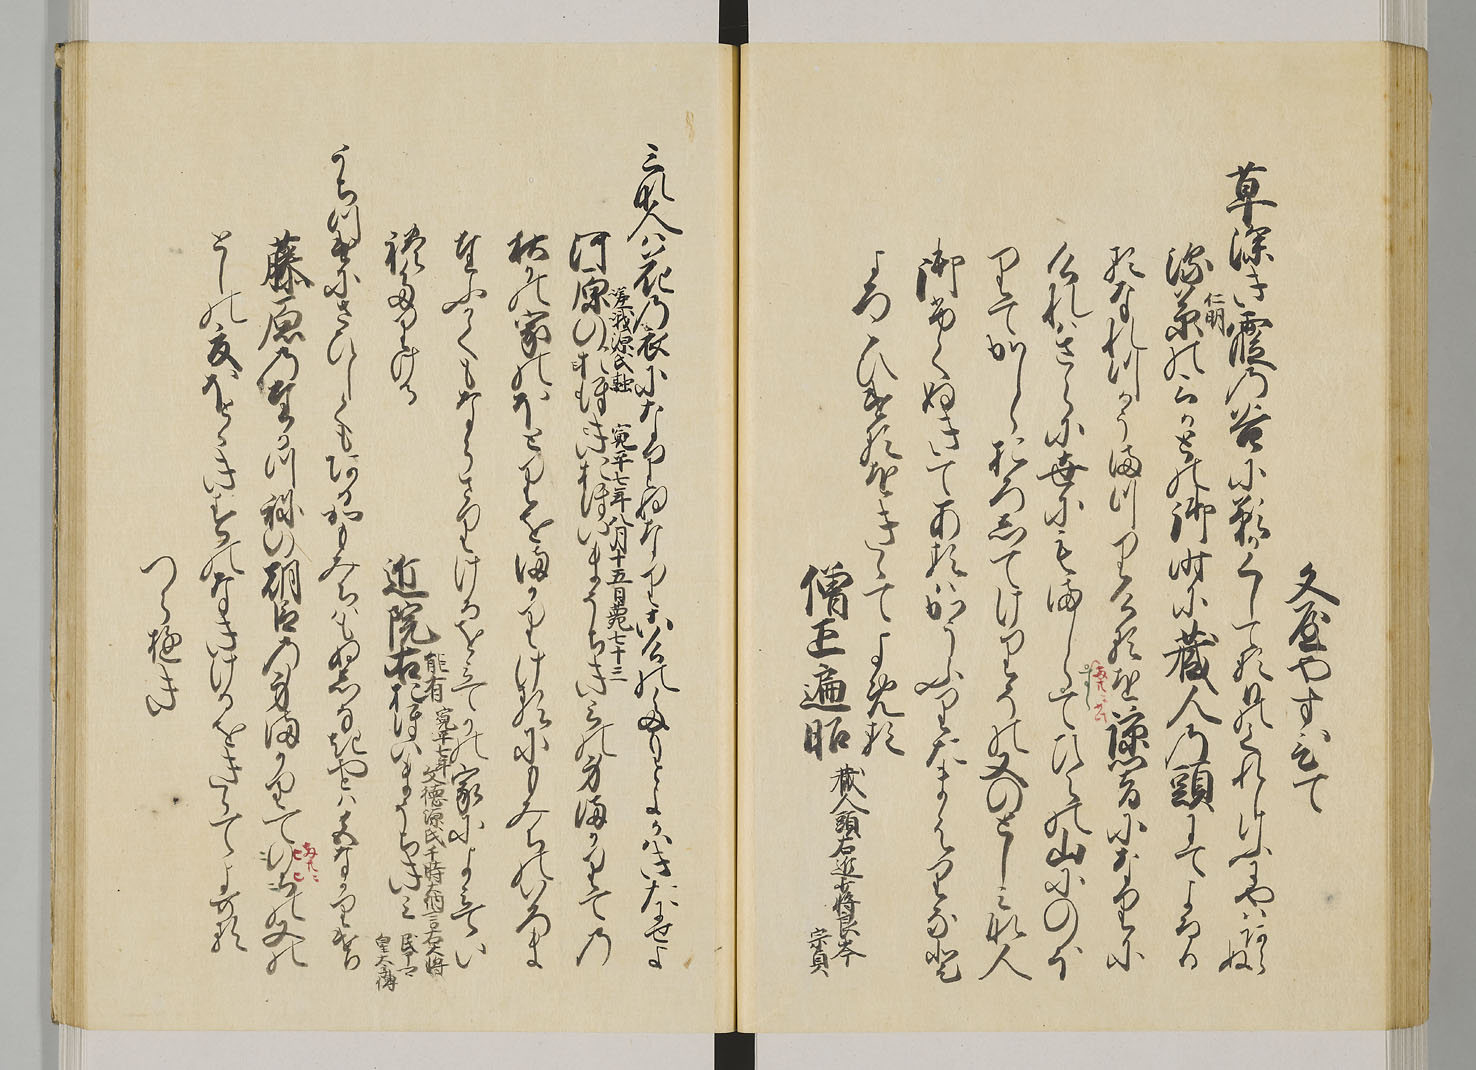 文屋やすひて
草深き霞の谷に影かくしてる日のくれしけふにやはあらぬ
深草のみかとの御時に蔵人の頭にてよるひ
仁明
るなれつかうまつりけるを諒闇になりに
けれはさらに世にもましらすしてひえの山にのほ
りてかしらおろしてけりその又のとしみな人
御ふくぬきてあるはかうふりたまはりなと
よろこひけるをきゝてよめる
僧正遍昭 蔵人頭右近少将良岑宗貞
みな人は花の衣になりぬなりこけのたもとよかはきたにせよ
嵯峨源氏融 寛平七年八月廿五日薨七十三
河原のおほきおほいまうちきみの身まかりての
秋かの家のほとりをまかりけるにもみちのいろま
たふかくもならさりけるを見てかの家によみてい
れたりける
近院右おほいまうちきみ
能有 寛平七年 文徳源氏于時大納言右大将
うちつけにさひしくもあるかもみちはもぬしなきやとは色なかりけり
藤原のたかつねの朝臣の身まかりての又の
としの夏ほとゝきすのなきけるをきゝてよめる
つらゆき